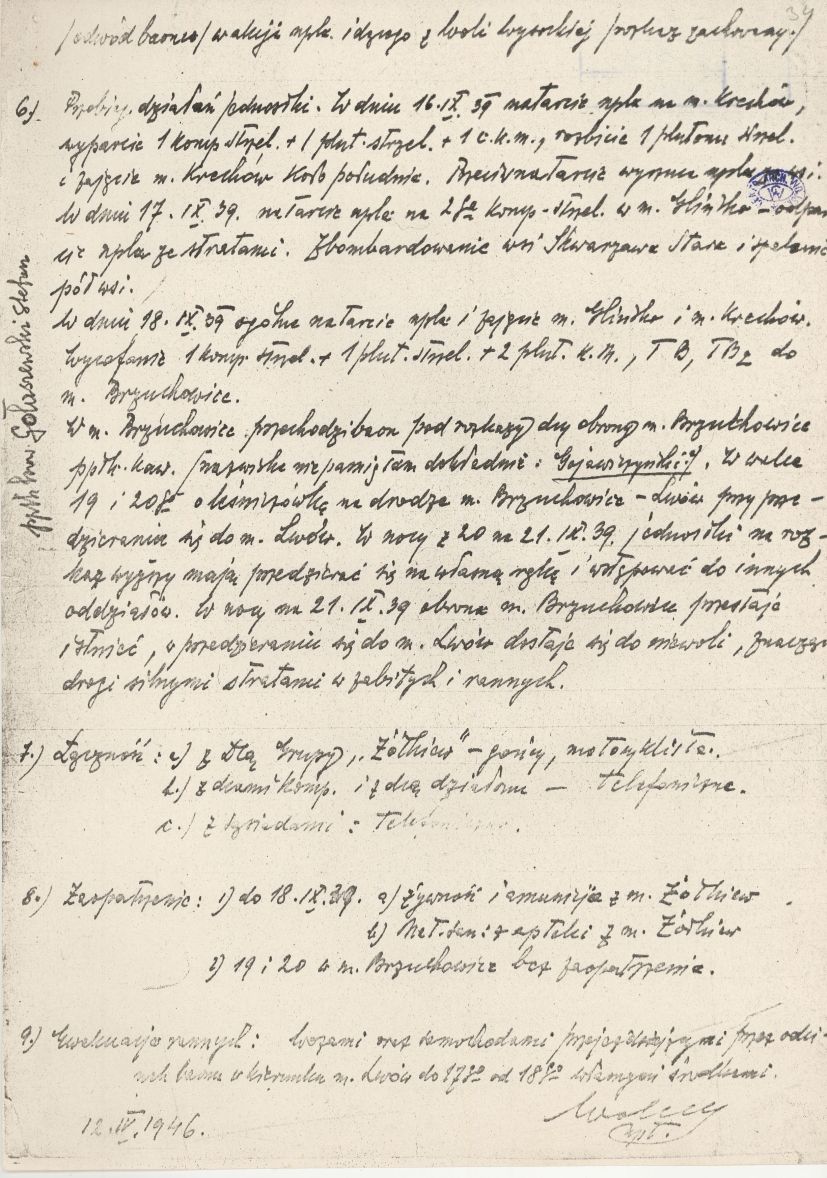 34
/odwód baonu/ w akcji npla. idącego z Woli Wysockiej /rozkaz zachowany./
6./ Przebieg działań jednostki. W dniu 16.IX.39 natarcie npla na m. Krechów,
wyparcie 1 komp. strzel. + 1 plut. strzel. + 1 c.k.m., rozbicie 1 plutonu strzel.
i zajęcie m. Krechów koło południa. Przeciwnatarcie wyrzuca npla z wsi.
W dniu 17.IX.39. natarcie npla na 2gą komp. strzel. w m. Glińsko – odpar
cie npla ze stratami. Zbombardowanie wsi Skwarzawa Stara i spalenie
pół wsi.
W dniu 18.IX.39 ogólne natarcie npla i zajęcie m. Glińsko i m. Krechów.
Wycofanie 1 komp. strzel. + 1 plut. strzel. + 2 plut. k.m., TB, TB2 do
m. Brzuchowice.
W m. Brzuchowice przechodzi baon pod rozkazy dcy obrony m. Brzuchowice
ppłk. kaw. /nazwiska nie pamiętam dokładnie: /. W walce
19 i 20go o leśniczówkę na drodze m. Brzuchowice – Lwów przy prze-
dzieraniu się do m. Lwów. W nocy z 20 na 21.IX.39. jednostki na roz-
kaz wyższy mają przedzierać się na własną rękę i wstępować do innych
oddziałów. W nocy na 21.IX.39 obrona m. Brzuchowice przestaje
istnieć, a przedzieraniu się do m. Lwów dostaje się do niewoli, znacząc
drogi silnymi stratami w zabitych i rannych.
ppłk kaw. Gołaszewski Stefan
7.) Łączność: a/ z Dcą Grupy „Żółkiew" – gońcy, motocyklista.
b./ z dcami komp. i z dcą działonu – telefoniczna.
c./ z sąsiadami: telefoniczna.
8.) Zaopatrzenie: 1) do 18.IX.39. a) żywność i amunicja z m. Żółkiew
b) Mat. san. z apteki z m. Żółkiew
2) 19 i 20 w m. Brzuchowice bez zaopatrzenia.
9.) Ewakuacja rannych: wozami oraz samochodami przejeżdżającymi przez odci-
nek baonu w kierunku m. Lwów do 17go od 18go własnymi środkami.
12.IV.1946.
kpt.